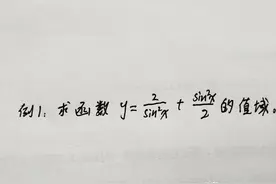 例1: 求函数 y = 2/sin²x + sin²x/2 的值域。